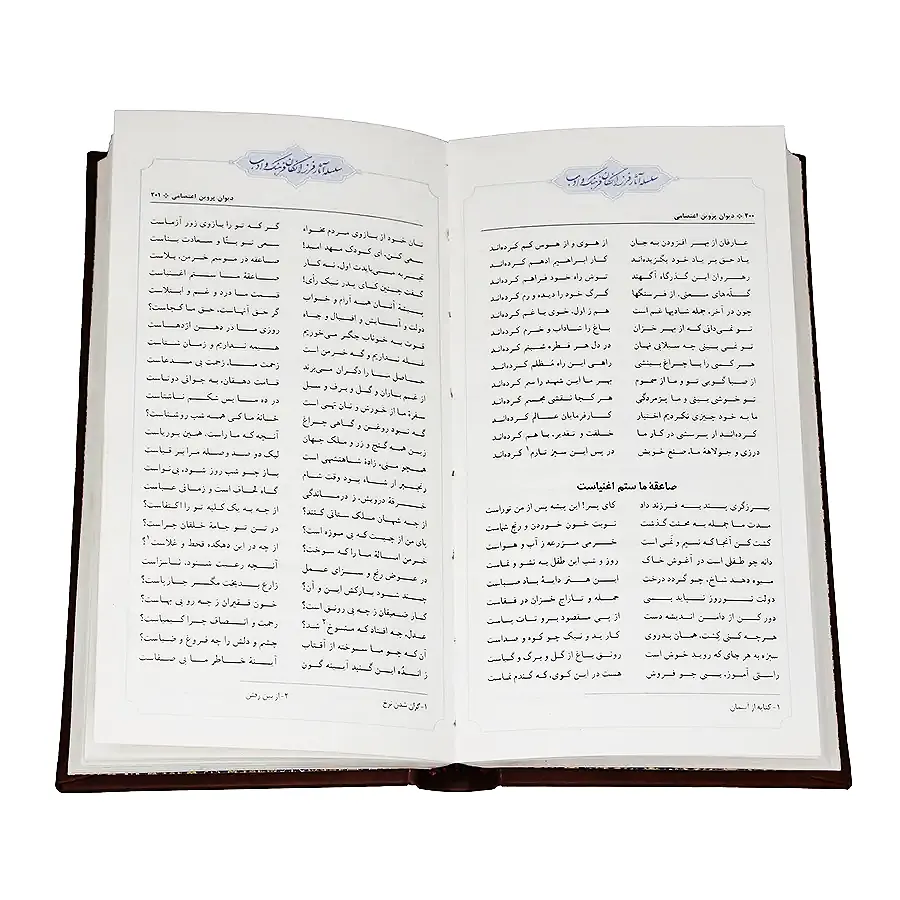 سلسله آثار فرزانگان فرهنگ و ادب
۲۰۰ ❖ دیوان پروین اعتصامی
عارفان از بهر افزودن به جان از هوی و از هوس کم کرده‌اند
یاد حق بر یاد خود بگزیده‌اند کار ابراهیم ادهم کرده‌اند
رهروان این گذرگاه آگهند توش راه خود فراهم کرده‌اند
گله‌های معنی، از فرسنگها گرگ خود را دیده و رم کرده‌اند
چون در آخر، جمله شادیها غم است هم ز اول، خوی با غم کرده‌اند
تو نمی‌دانی که از بهر خزان باغ را شاداب و خرم کرده‌اند
تو نمی بینی چه سیلابی نهان در دل هر قطره شبنم کرده‌اند
هر کسی را با چراغ بینشی راهی این راه مُظلم کرده‌اند
از صبا گویی تو و ما از سموم بهر ما این شهد را سم کرده‌اند
تو خوشی بینی و ما پژمردگی هر کجا نقشی مجسم کرده‌اند
ما به خود چیزی نکردیم اختیار کارفرمایان عالم کرده‌اند
کرده‌اند ار پرسشی در کار ما خلقت و تقدیر، با هم کرده‌اند
درزی و جولاهۀ ما، صنع خویش در پس این سبز طارم۱ کرده‌اند
صاعقۀ ما ستم اغنیاست
برزگری پند به فرزند داد کای پسر! این پیشه پس از من توراست
مدت ما جمله به محنت گذشت نوبت خون خوردن و رنج شماست
کشت کن آنجا که نسیم و نَمی است خرمی مزرعه ز آب و هواست
دانه چو طفلی است در آغوش خاک روز و شب این طفل به نشو و نماست
میوه دهد شاخ، چو گردد درخت این هنر دایۀ باد صباست
دولت نوروز نپاید بسی حمله و تاراج خزان در قفاست
دور کن از دامن اندیشه دست از پی مقصود برو تات پاست
هر چه کنی کِشت، همان بدروی کار بد و نیک چو کوه و صداست
سبزه به هر جای که روید خوش است رونق باغ از گل و برگ و گیاست
راستی آموز، بسی جو فروش هست در این کوی، که گندم نماست
۱- کنایه از آسمان
سلسله آثار فرزانگان فرهنگ و ادب
دیوان پروین اعتصامی ❖ ۲۰۱
نان خود از بازوی مردم مخواه گر که تو را بازوی زور آزماست
سعی کن، ای کودک مهد امید! سعی تو بنّا و سعادت بناست
تجربه می‌بایدت اول، نه کار صاعقه در موسم خرمن، بلاست
گفت چنین کای پدر نیک رأی! صاعقۀ ما ستم اغنیاست
پیشۀ آنان همه آرام و خواب قسمت ما درد و غم و ابتلاست
دولت و آسایش و اقبال و جاه گر حق آنهاست، حق ما کجاست؟
قوت به خوناب جگر می‌خوریم روزی ما در دهن اژدهاست
غله نداریم و گه خرمن است هیمه نداریم و زمان شتاست
حاصل ما را دگران می‌برند زحمت ما، زحمت بی مدعاست
از غم باران و گل و برف و سیل قامت دهقان، به جوانی دوتاست
سفرۀ ما از خورش و نان تهی است در ده ما بس شکم ناشتاست
گه نبود روغن و گاهی چراغ خانۀ ما کی همه شب روشناست؟
زین همه گنج و زر و ملک جهان آنچه که ما راست، همین بوریاست
همچو منی، زادۀ شاهنشهی است لیک دو صد وصله مرا بر قباست
رنجبر ار شاه بود وقت شام باز چو شب روز شود، بی‌نواست
خرقۀ درویش، ز درماندگی گاه لحاف است و زمانی عباست
از چه شهان ملک ستانی کنند؟ از چه به یک کلبه تو را اکتفاست؟
پای من از چیست که بی موزه است؟ در تن تو جامۀ خلقان چراست؟
خرمن امسالۀ ما را که سوخت؟ از چه در این دهکده قحط و غلاست۱؟
در عوض رنج و سزای عمل آنچه رعیت شنود، ناسزاست
چند شود بارکش این و آن؟ زارع بدبخت مگر چارپاست؟
کار ضعیفان ز چه بی رونق است؟ خون فقیران ز چه رو بی بهاست؟
عدل، چه افتاد که منسوخ۲ شد؟ رحمت و انصاف چرا کیمیاست؟
آن که چو ما سوخته از آفتاب چشم و دلش را چه فروغ و ضیاست؟
ز اندُه این گنبد آیینه گون آینۀ خاطر ما بی صفاست
۱-گران شدن نرخ ۲- از بین رفتن